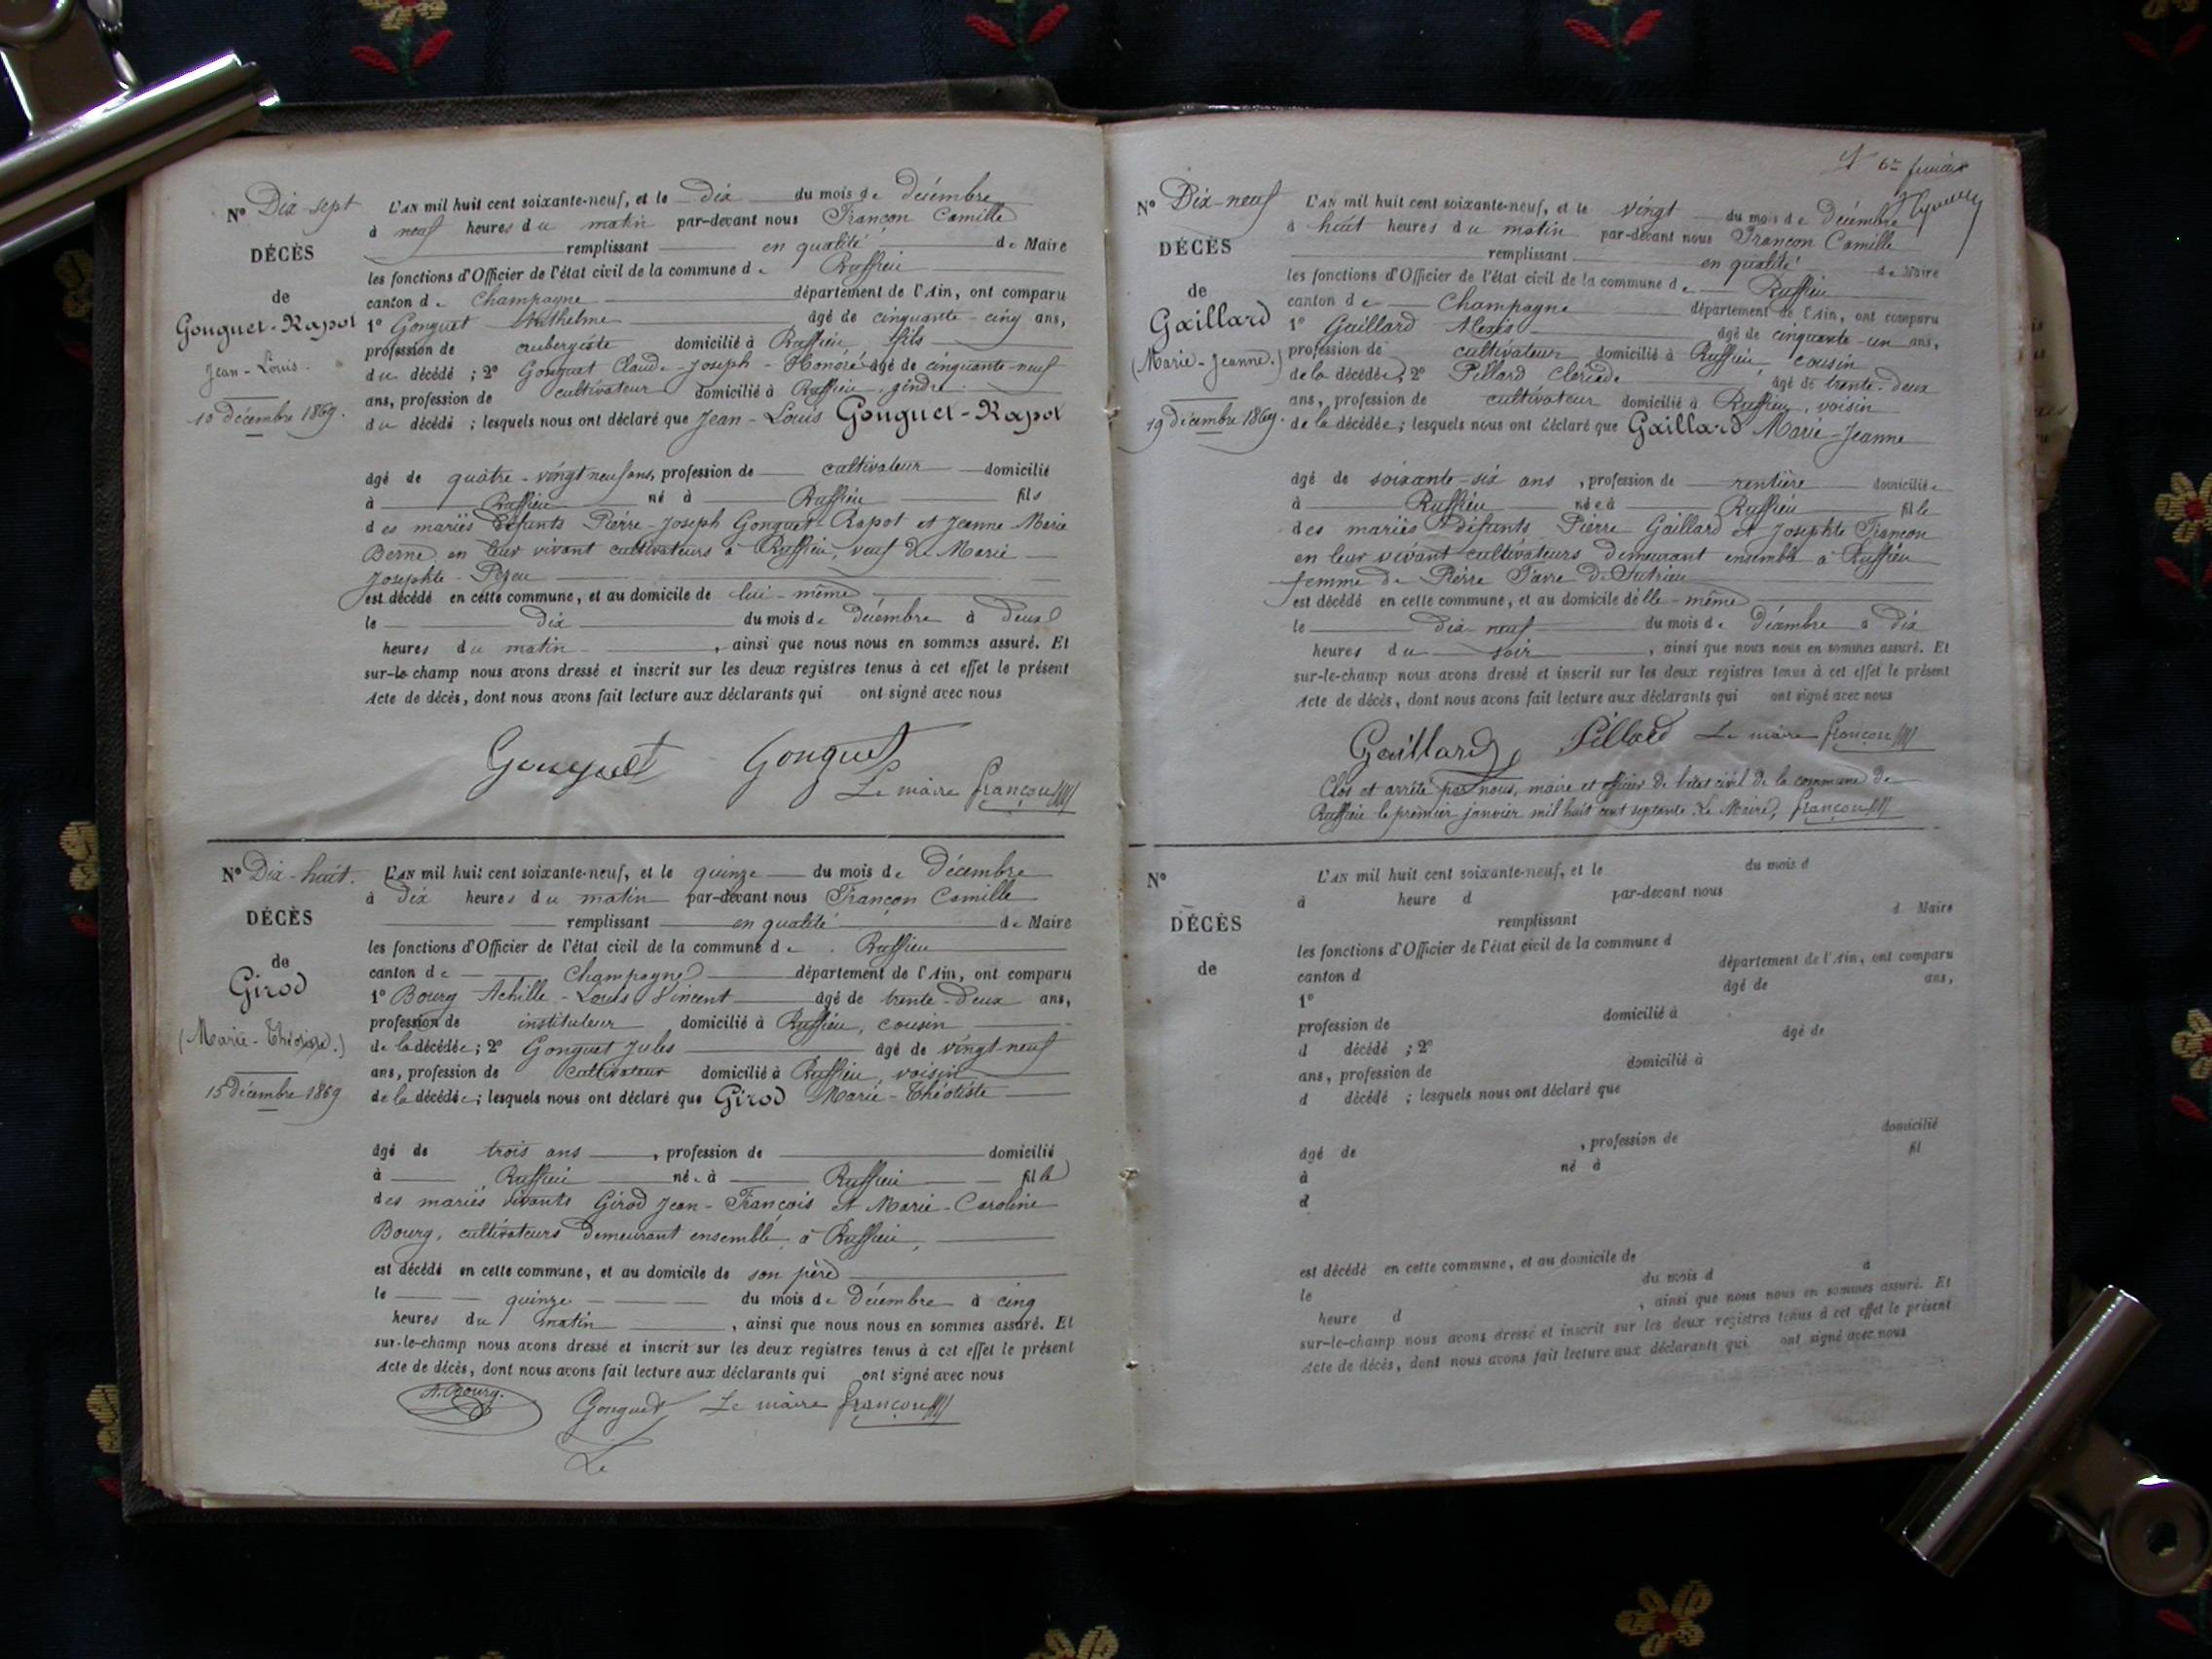 N° Dix-sept
DÉCÈS
de
Gonguet-Rapot
Jean-Louis.
10 décembre 1869.
L'AN mil huit cent soixante-neuf, et le dix du mois de décembre
à neuf heures du matin par-devant nous Françon Camille
remplissant en qualité de Maire
les fonctions d'Officier de l'état civil de la commune de Ruffieu
canton de Champagne département de l'Ain, ont comparu
1° Gonguet Anthelme âgé de cinquante-cinq ans,
profession de aubergiste domicilié à Ruffieu fils
du décédé ; 2° Gonguet Claude-Joseph-Honoré âgé de cinquante-neuf
ans, profession de cultivateur domicilié à Ruffieu, gendre
du décédé ; lesquels nous ont déclaré que Jean-Louis Gonguet-Rapot
âgé de quatre-vingt neuf ans, profession de cultivateur domicilié
à Ruffieu né à Ruffieu fils
des mariés défunts Pierre-Joseph Gonguet-Rapot et Jeanne Marie
Berne en leur vivant cultivateurs à Ruffieu, veuf de Marie
Josephte-Pezeu
est décédé en cette commune, et au domicile de lui-même
le dix du mois de décembre à deux
heures du matin, ainsi que nous nous en sommes assuré. Et
sur-le-champ nous avons dressé et inscrit sur les deux registres tenus à cet effet le présent
Acte de décès, dont nous avons fait lecture aux déclarants qui ont signé avec nous
Gonguet Gonguet
Le maire françon
N° Dix-huit.
DÉCÈS
de
Girod
(Marie-Théotiste.)
15 décembre 1869
L'AN mil huit cent soixante-neuf, et le quinze du mois de Décembre
à dix heures du matin par-devant nous Françon Camille
remplissant en qualité de Maire
les fonctions d'Officier de l'état civil de la commune de Ruffieu
canton de Champagne département de l'Ain, ont comparu
1° Bourg Achille-Louis Vincent âgé de trente-deux ans,
profession de instituteur domicilié à Ruffieu, cousin
de la décédée ; 2° Gonguet Jules âgé de vingt-neuf
ans, profession de cultivateur domicilié à Ruffieu, voisin
de la décédée ; lesquels nous ont déclaré que Girod Marie-Théotiste
âgé de trois ans, profession de domicilié
à Ruffieu née à Ruffieu fille
des mariés vivants Girod Jean-François et Marie-Caroline
Bourg, cultivateurs demeurant ensemble à Ruffieu,
est décédé en cette commune, et au domicile de son père
le quinze du mois de Décembre à cinq
heures du matin, ainsi que nous nous en sommes assuré. Et
sur-le-champ nous avons dressé et inscrit sur les deux registres tenus à cet effet le présent
Acte de décès, dont nous avons fait lecture aux déclarants qui ont signé avec nous
A. Bourg. Gonguet Le maire françon
Le
N° Dix-neuf
DÉCÈS
de
Gaillard
(Marie-Jeanne.)
19 décembre 1869.
L'AN mil huit cent soixante-neuf, et le vingt du mois de Décembre
à huit heures du matin par-devant nous Françon Camille
remplissant en qualité de Maire
les fonctions d'Officier de l'état civil de la commune de Ruffieu
canton de Champagne département de l'Ain, ont comparu
1° Gaillard Alexis âgé de cinquante-un ans,
profession de cultivateur domicilié à Ruffieu, cousin
de la décédée ; 2° Pillard âgé de trente-deux
ans, profession de cultivateur domicilié à Ruffieu, voisin
de la décédée ; lesquels nous ont déclaré que Gaillard Marie-Jeanne
âgé de soixante-six ans, profession de rentière domiciliée
à Ruffieu née à Ruffieu fille
des mariés défunts Pierre Gaillard et Josephte Françon
en leur vivant cultivateurs demeurant ensemble à Ruffieu
femme de Pierre Favre de Sutrieu
est décédé en cette commune, et au domicile d'elle-même
le dix-neuf du mois de Décembre à dix
heures du soir, ainsi que nous nous en sommes assuré. Et
sur-le-champ nous avons dressé et inscrit sur les deux registres tenus à cet effet le présent
Acte de décès, dont nous avons fait lecture aux déclarants qui ont signé avec nous
Gaillard Pillard Le maire françon
Clos et arrêté par nous, maire et officier de l'état civil de la commune de
Ruffieu le premier janvier mil huit cent septante. Le Maire, françon
N°
DÉCÈS
de
L'AN mil huit cent soixante-neuf, et le du mois d
à heure d par-devant nous
remplissant d Maire
les fonctions d'Officier de l'état civil de la commune d
canton d département de l'Ain, ont comparu
1° âgé de ans,
profession de domicilié à
d décédé ; 2° âgé de
ans, profession de domicilié à
d décédé ; lesquels nous ont déclaré que
âgé de , profession de domicilié
à né à fil
d
est décédé en cette commune, et au domicile de
le du mois d à
heure d , ainsi que nous nous en sommes assuré. Et
sur-le-champ nous avons dressé et inscrit sur les deux registres tenus à cet effet le présent
Acte de décès, dont nous avons fait lecture aux déclarants qui ont signé avec nous